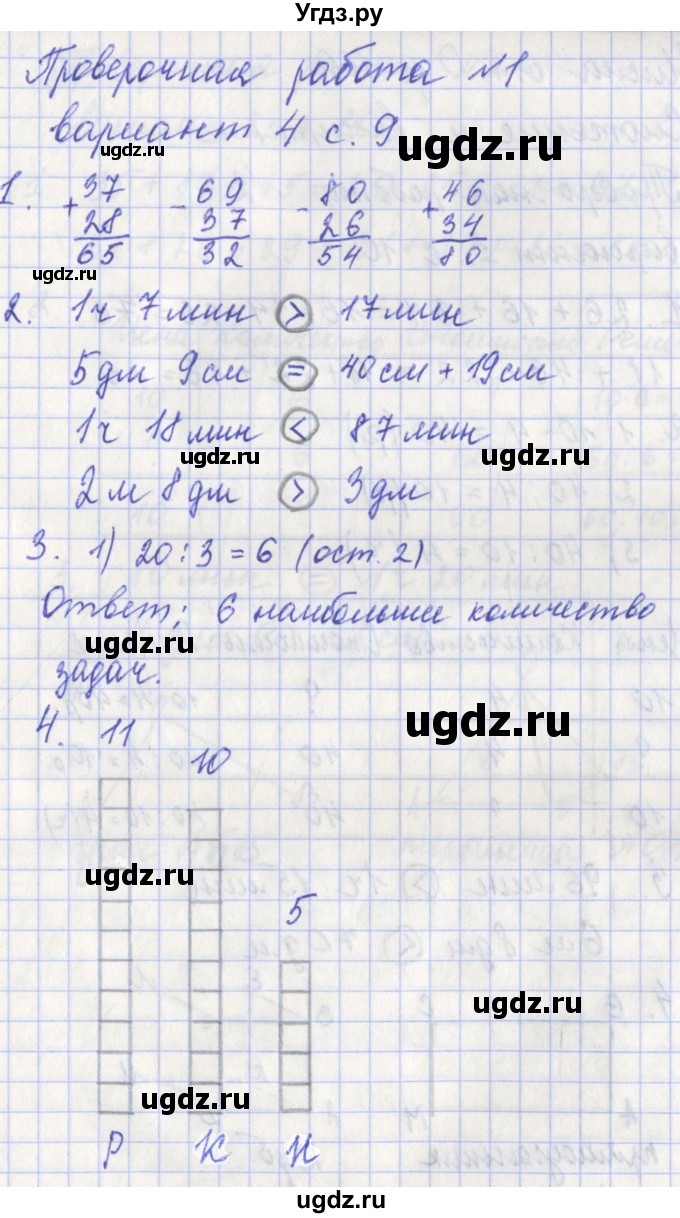 Угдз.ру
Проверочная работа №1
вариант 4 с. 9
ugdz.ru
1. +37 -69 -80 +46
28 37 26 34
65 32 54 80
ugdz.ru ugdz.ru
2. 1ч 7мин > 17мин
ugdz.ru
5дм 9см = 40см + 19см
1ч 18мин < 87мин
ugdz.ru ugdz.ru
2м 8дм > 3дм
3. 1) 20:3=6 (ост. 2)
Ответ; 6 наибольшее количество
ugdz.ru
задач.
ugdz.ru
4. 11
10
ugdz.ru
5
ugdz.ru
ugdz.ru
Р К Н
ugdz.ru